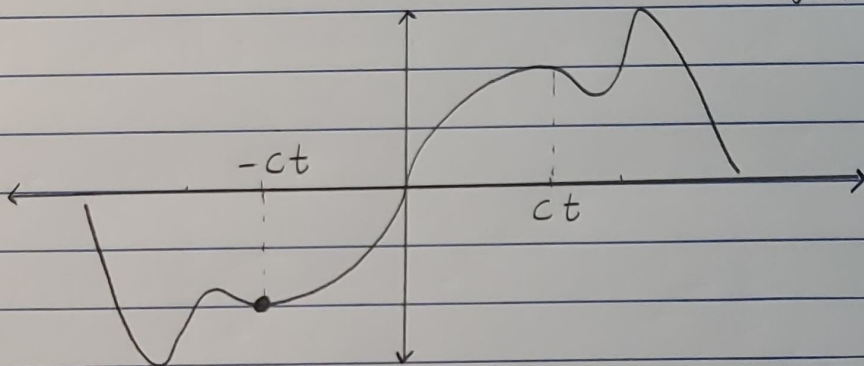 -ct
ct